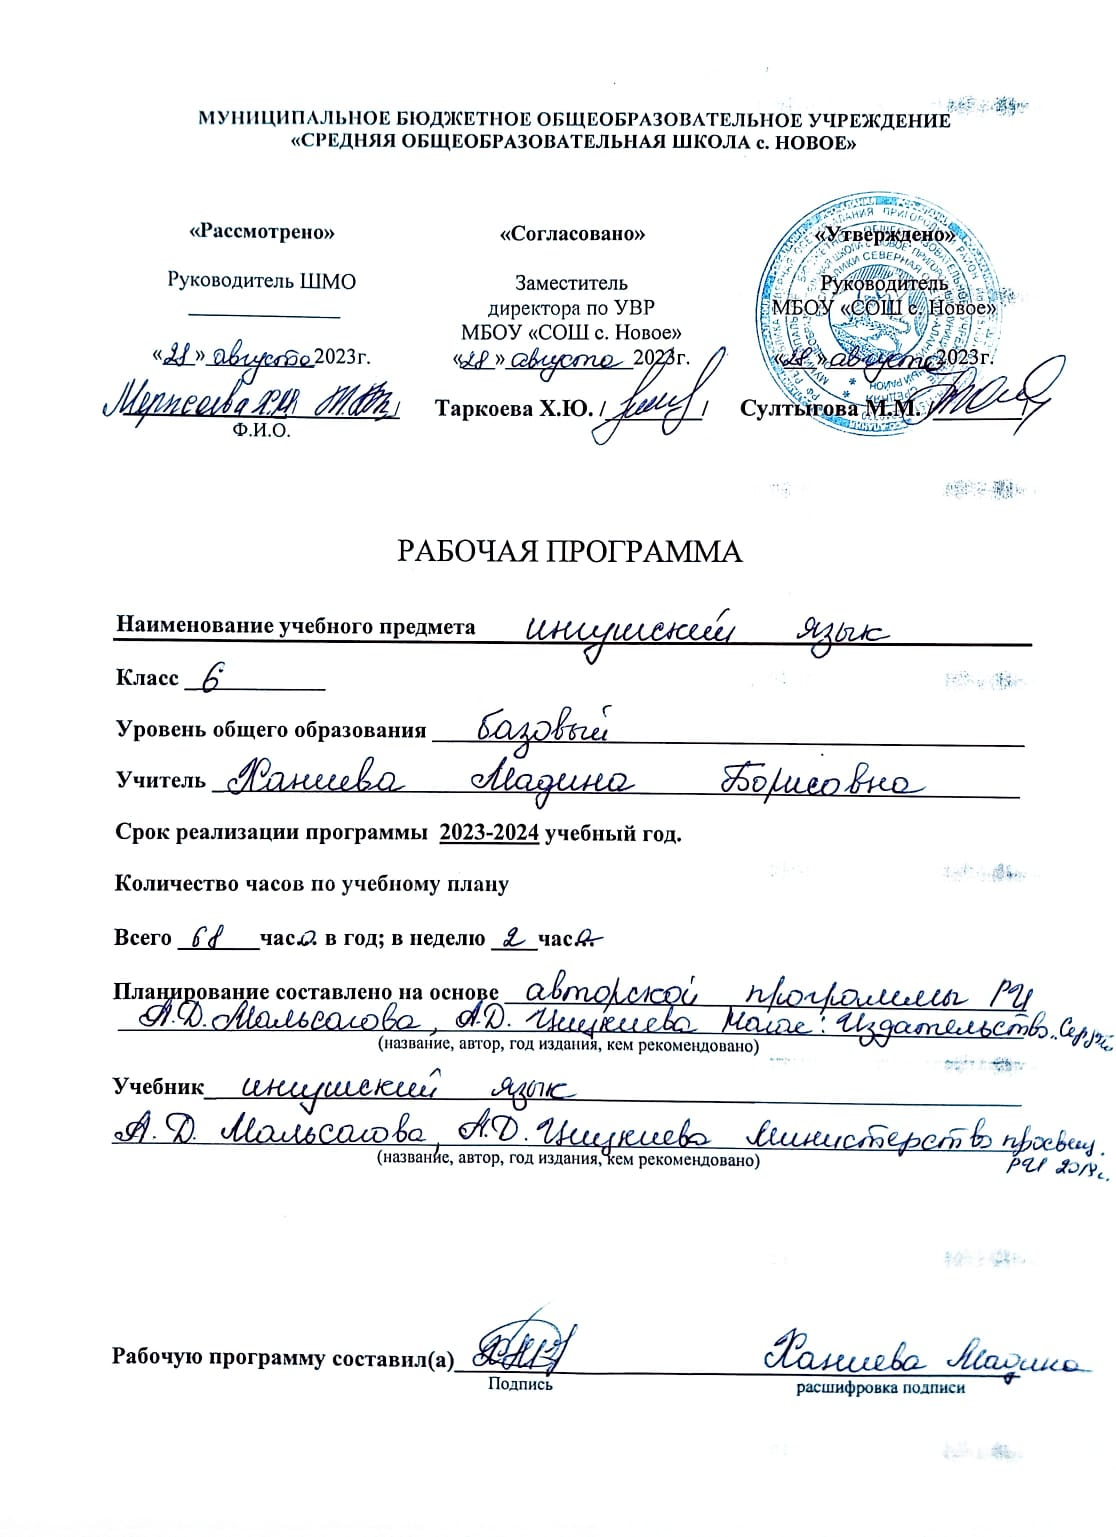 МУНИЦИПАЛЬНОЕ БЮДЖЕТНОЕ ОБЩЕОБРАЗОВАТЕЛЬНОЕ УЧРЕЖДЕНИЕ
«СРЕДНЯЯ ОБЩЕОБРАЗОВАТЕЛЬНАЯ ШКОЛА с. НОВОЕ»
«Рассмотрено»
Руководитель ШМО
«28» августа 2023г.
Ф.И.О.
«Согласовано»
Заместитель
директора по УВР
МБОУ «СОШ с. Новое»
«28» августа 2023г.
Таркоева Х.Ю. / /
«Утверждено»
Руководитель
МБОУ «СОШ с. Новое»
«28» августа 2023г.
Султыгова М.М. /
РАБОЧАЯ ПРОГРАММА
Наименование учебного предмета ингушский язык
Класс 6
Уровень общего образования базовый
Учитель Ханиева Мадина Борисовна
Срок реализации программы 2023-2024 учебный год.
Количество часов по учебному плану
Всего 68 часа в год; в неделю 2 часа
Планирование составлено на основе авторской программы РИ
А.Д. Мальсагова, А.Д. Цицкиева Издательство
(название, автор, год издания, кем рекомендовано)
Учебник ингушский язык
А. Д. Мальсагова, А.Д. Цицкиева Министерство просвещ.
РИ
(название, автор, год издания, кем рекомендовано)
Рабочую программу составил(а) Ханиева Мадина
Подпись расшифровка подписи